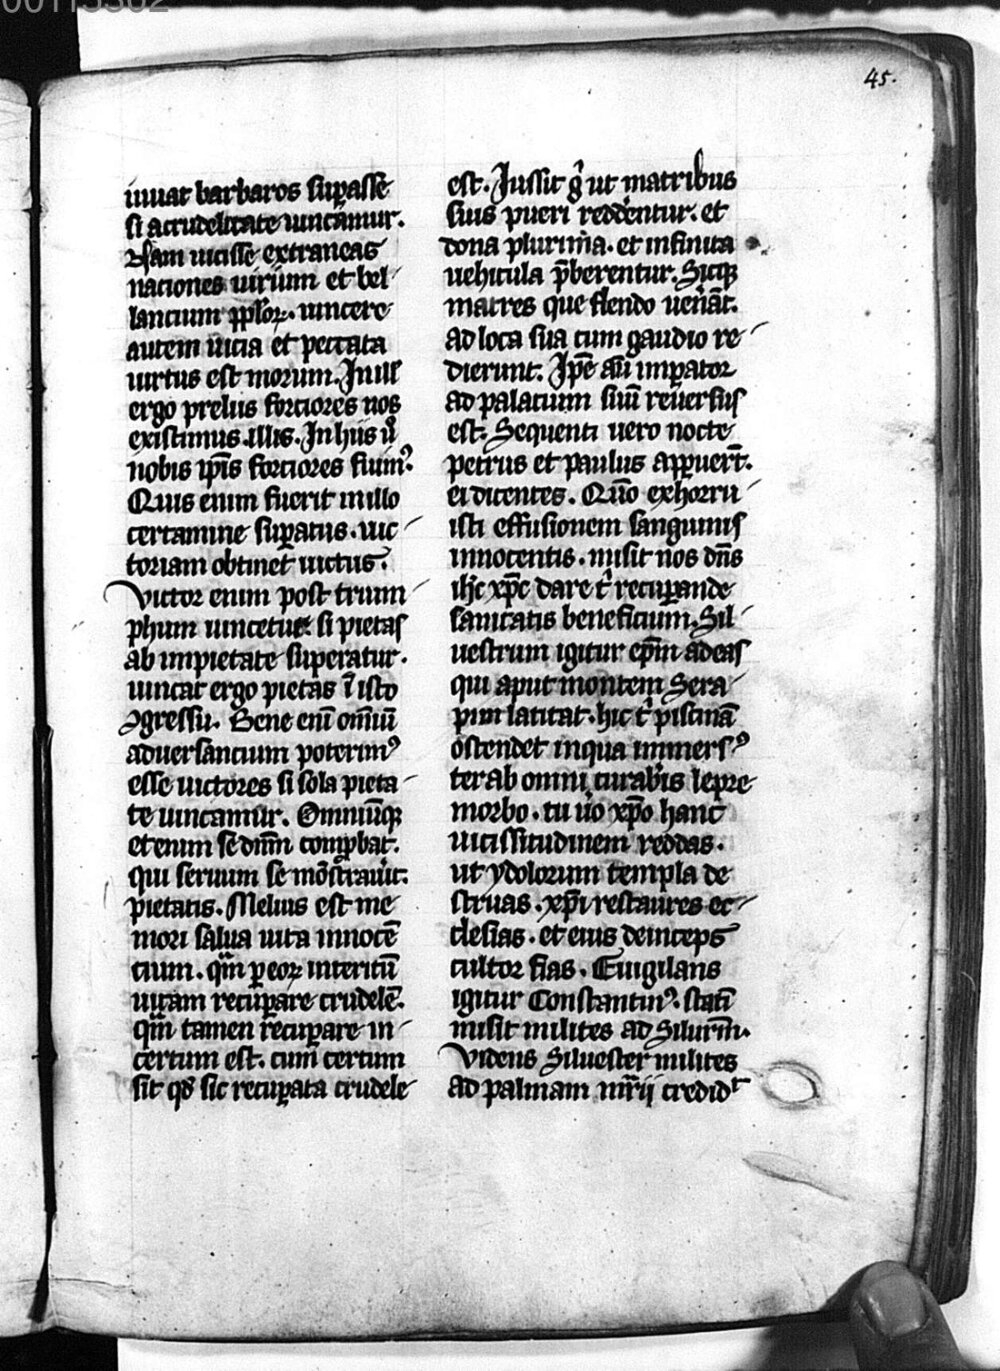 45.
iuuat barbaros suꝑasse
si a crudelitate uincamur.
Nam uicisse extraneas
naciones uirium et bel
lancium ꝓploꝝ. uincere
autem uicia et peccata
uirtus est morum. In illis
ergo preliis forciores nos
existimus illis. In hiis ů
nobis ip̄is forciores sumꝰ.
Quis enim fuerit in illo
certamine suꝑatus. uic
toriam obtinet uictus.
Victor enim post trium
phum uincetur si pietas
ab impietate superatur.
uincat ergo pietas ī isto
ꝯgressu. Bene enī om̄iū
aduersancium poterimꝰ
esse uictores si sola pieta
te uincamur. Omniūqꝫ
etenim se dn̄m comꝓbat.
qui seruum se mōstrauit
pietatis. Melius est me
mori salua uita innocē
cium. qm̄ ꝑ eoꝝ interitū
uitam recuꝑare crudelē.
qm̄ tamen recuꝑare in
certum est. cum certum
sit qd̛ sic recuꝑata crudele
est. Iussit g̊ ut matribus
suis pueri redderentur. et
dona plurima. et infinita
uehicula p̄berentur. Sicqꝫ
matres que flendo uenāt.
ad loca sua cum gaudio re
dierunt. Ip̄e aū imꝑator
ad palacium suū reuersus
est. Sequenti uero nocte
petrus et paulus apꝑuert̄.
ei dicentes. Qūo exhorru
isti effusionem sanguinis
innocentis. misit nos dn̄s
ih̄c xp̄c dare t̊ recuꝑande
sanitatis beneficium. Sil
uestrum igitur ep̄m adeas
qui aput montem Sera
pim latitat. hic t̊ piscinā
ostendet in qua immersꝰ
ter ab omni curabis lepre
morbo. tu ůo xp̄o hanc
uicissitudinem reddas.
ut ydolorum templa de
struas. xp̄i restaures ec
clesias. et eius deinceps
cultor fias. Euigilans
igitur Constantinꝰ. statī
misit milites ad Siluem̄.
Videns Siluester milites
ad palmam mr̄ii credidᵗ